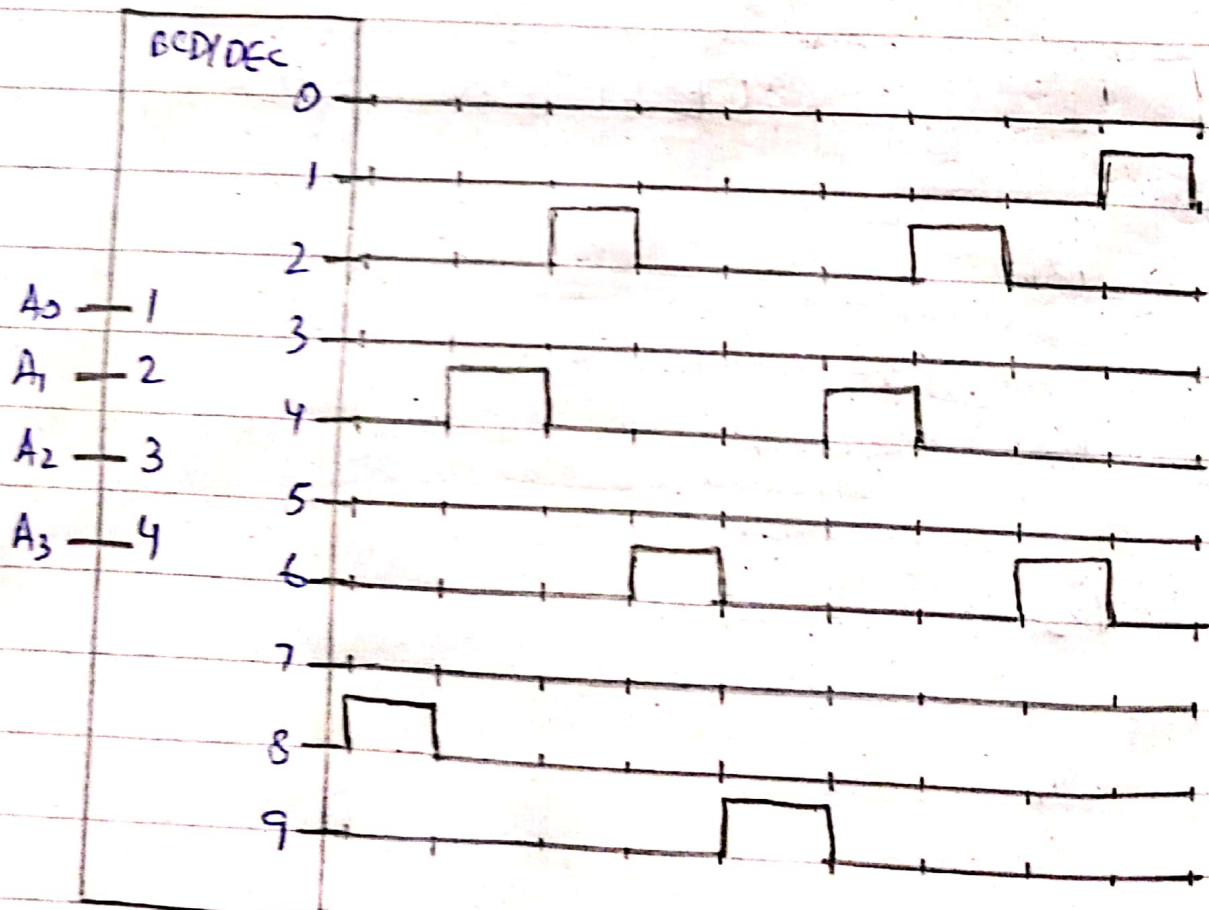 BCD/DEC
0
1
2
A0 1
3
A1 2
4
A2 3
5
A3 4
6
7
8
9